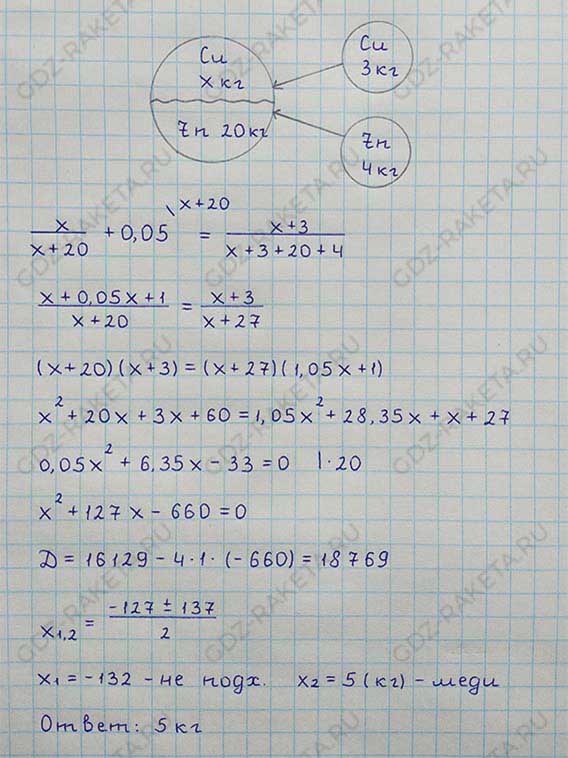 Cu
x кг
Zn 20кг
Cu
3кг
Zn
4кг
x/(x+20) + 0,05 \x+20 = (x+3)/(x+3+20+4)
(x+0,05x+1)/(x+20) = (x+3)/(x+27)
(x+20)(x+3)=(x+27)(1,05x+1)
x²+20x+3x+60=1,05x²+28,35x+x+27
0,05x²+6,35x-33=0 |·20
x²+127x-660=0
Д=16129-4·1·(-660)=18769
x1,2 = (-127±137)/2
x1=-132-не подх. x2=5(кг)-меди
Ответ: 5кг
GDZ-RAKETA.RU